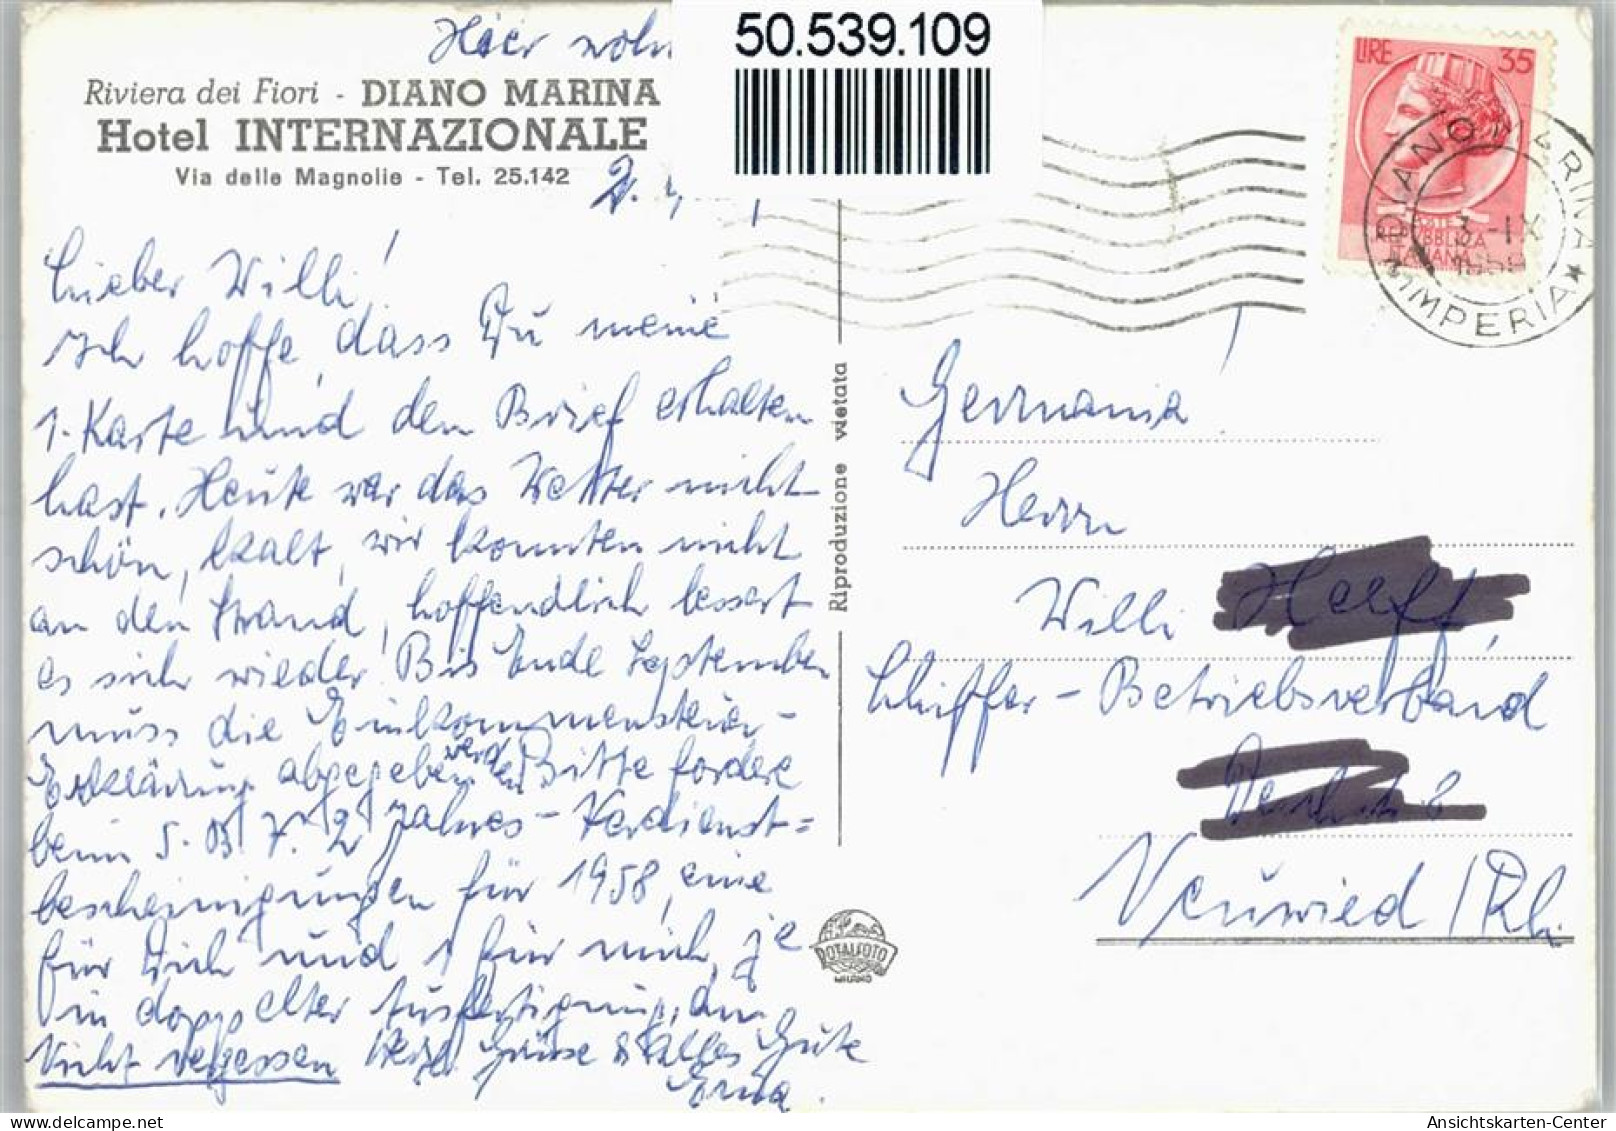 Hier
50.539.109
LIRE 35
Riviera dei Fiori - DIANO MARINA
Hotel INTERNAZIONALE
Via delle Magnolie - Tel. 25.142
2.
DIANO MARINA
3 - IX
POSTE
REPUBBLICA
ITALIANA
IMPERIA
Lieber Willi!
Ich hoffe, dass Du meine
1. Karte und den Brief erhalten
hast. Heute war das Wetter nicht
schön, kalt, wir konnten nicht
an den Strand, hoffendlich bessert
es sich wieder! Bis Ende September
muss die Einkommensteuer-
Erklärung abgegeben werden Bitte fordere
beim 2 Jahres-Verdienst=
bescheinigungen für 1958, eine
für Dich und 1 für mich, je
in doppelter Ausfertigung, an
Nicht vergessen Herzl. Grüsse & alles Gute
Erna.
Riproduzione vietata
ROTALFOTO
MILANO
Germania
Herrn
Willi
Schiffer-Betriebsverband
Neuwied / Rh.
Ansichtskarten-Center